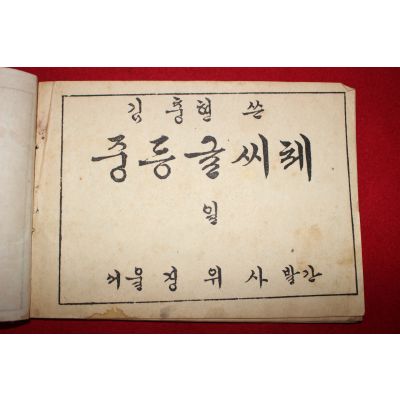 김충현 쓴
중등글씨체
일
서울정위사발간